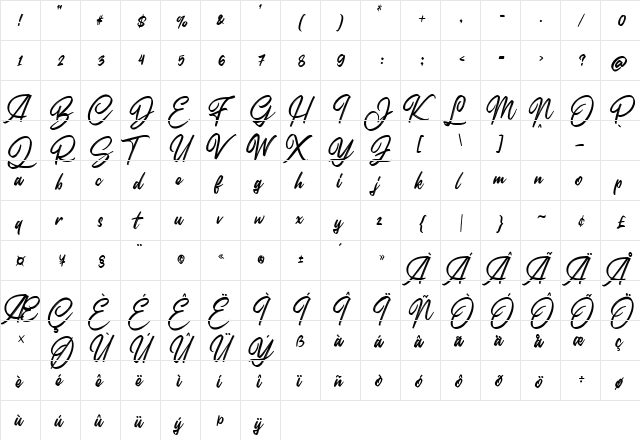 ! " # $ % & ' ( ) * + , - . / 0
1 2 3 4 5 6 7 8 9 : ; < = > ? @
A B C D E F G H I J K L M N O P
Q R S T U V W X Y Z [ \ ] ^ _ `
a b c d e f g h i j k l m n o p
q r s t u v w x y z { | } ~ ¢ £
¤ ¥ § ¨ © « ® ± ´ » À Á Â Ã Ä Å
Æ Ç È É Ê Ë Ì Í Î Ï Ñ Ò Ó Ô Õ Ö
× Ø Ù Ú Û Ü Ý ß à á â ã ä å æ ç
è é ê ë ì í î ï ñ ò ó ô õ ö ÷ ø
ù ú û ü ý þ ÿ